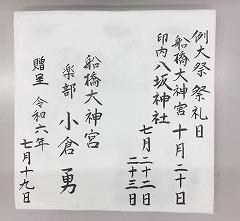 例大祭 祭礼日
船橋大神宮 十月二十日
印内八坂神社
七月 二十二日
二十三日
船橋大神宮
楽部 小倉 勇
贈呈 令和六年
七月十九日